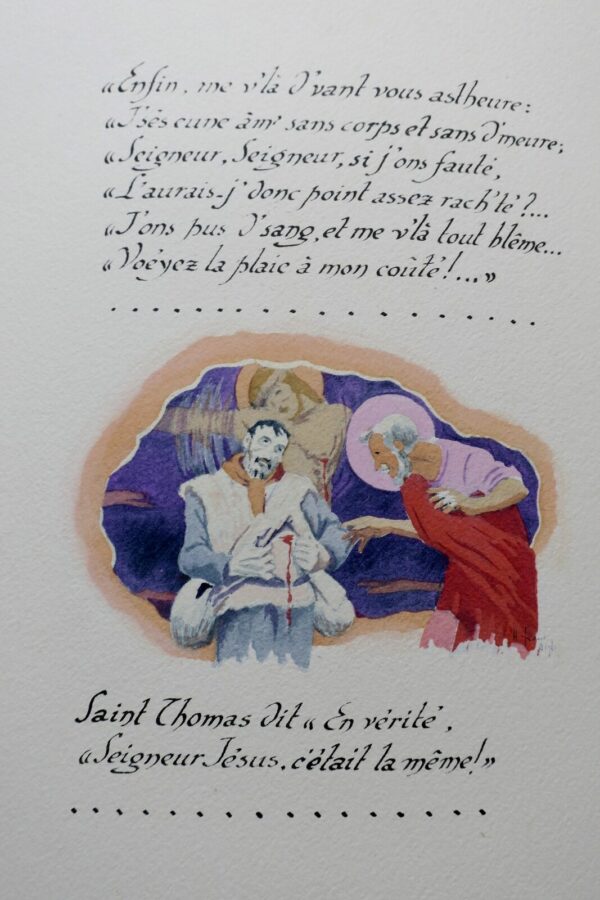 «Enfin, me v'là d'vant vous astheure:
«J'sés eune âm' sans corps et sans d'meure;
«Seigneur, Seigneur, si j'ons fauté,
«L'aurais-j' donc point assez rach'té?...
«J'ons pus d'sang, et me v'là tout blême...
«Voéyez la plaie à mon coûté!...»
. . . . . . . . . . . . . . . . . . .
Saint Thomas dit «En vérité,
«Seigneur Jésus, c'était la même!»
. . . . . . . . . . . . . . . . . . .